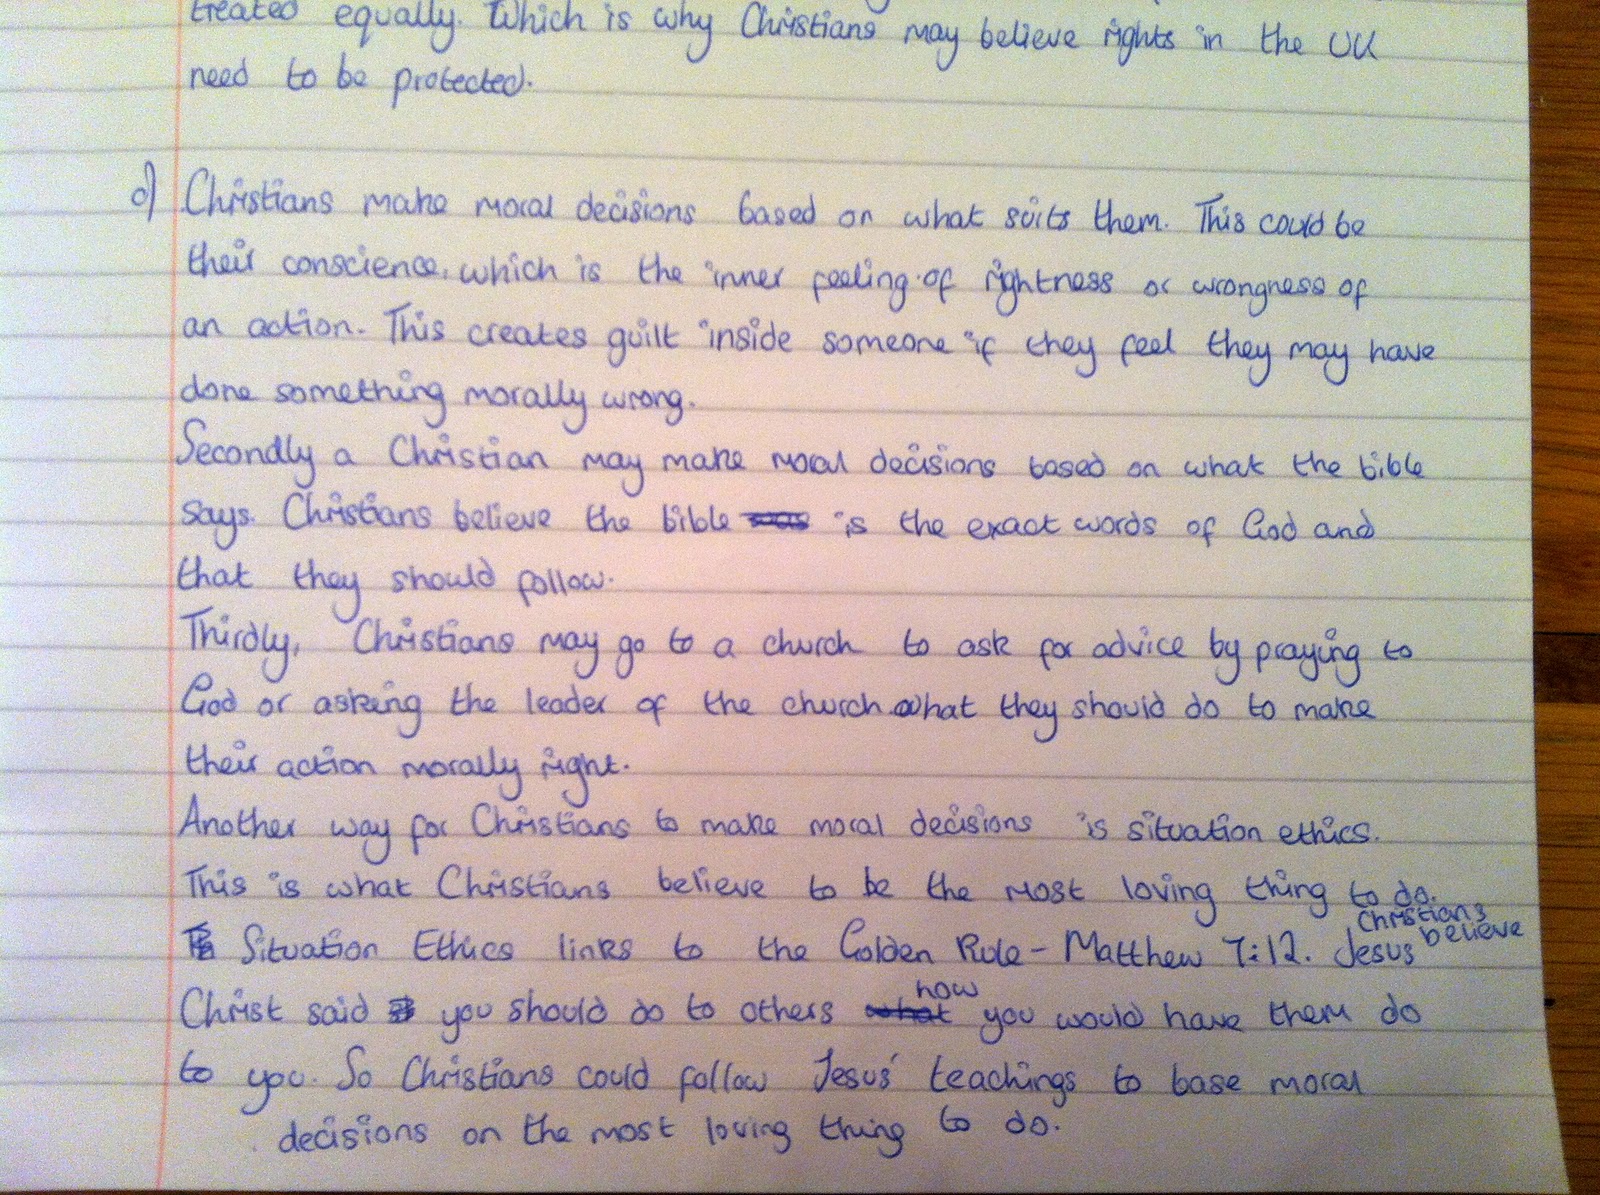 treated equally. Which is why Christians may believe rights in the UK
need to be protected.
c) Christians make moral decisions based on what suits them. This could be
their conscience, which is the inner feeling of rightness or wrongness of
an action. This creates guilt inside someone if they feel they may have
done something morally wrong.
Secondly a Christian may make moral decisions based on what the bible
says. Christians believe the bible was is the exact words of God and
that they should follow.
Thirdly, Christians may go to a church to ask for advice by praying to
God or asking the leader of the church what they should do to make
their action morally right.
Another way for Christians to make moral decisions is situation ethics.
This is what Christians believe to be the most loving thing to do.
Situation Ethics links to the Golden Rule - Matthew 7:12. Christians believe Jesus
Christ said you should do to others what how you would have them do
to you. So Christians could follow Jesus' teachings to base moral
decisions on the most loving thing to do.